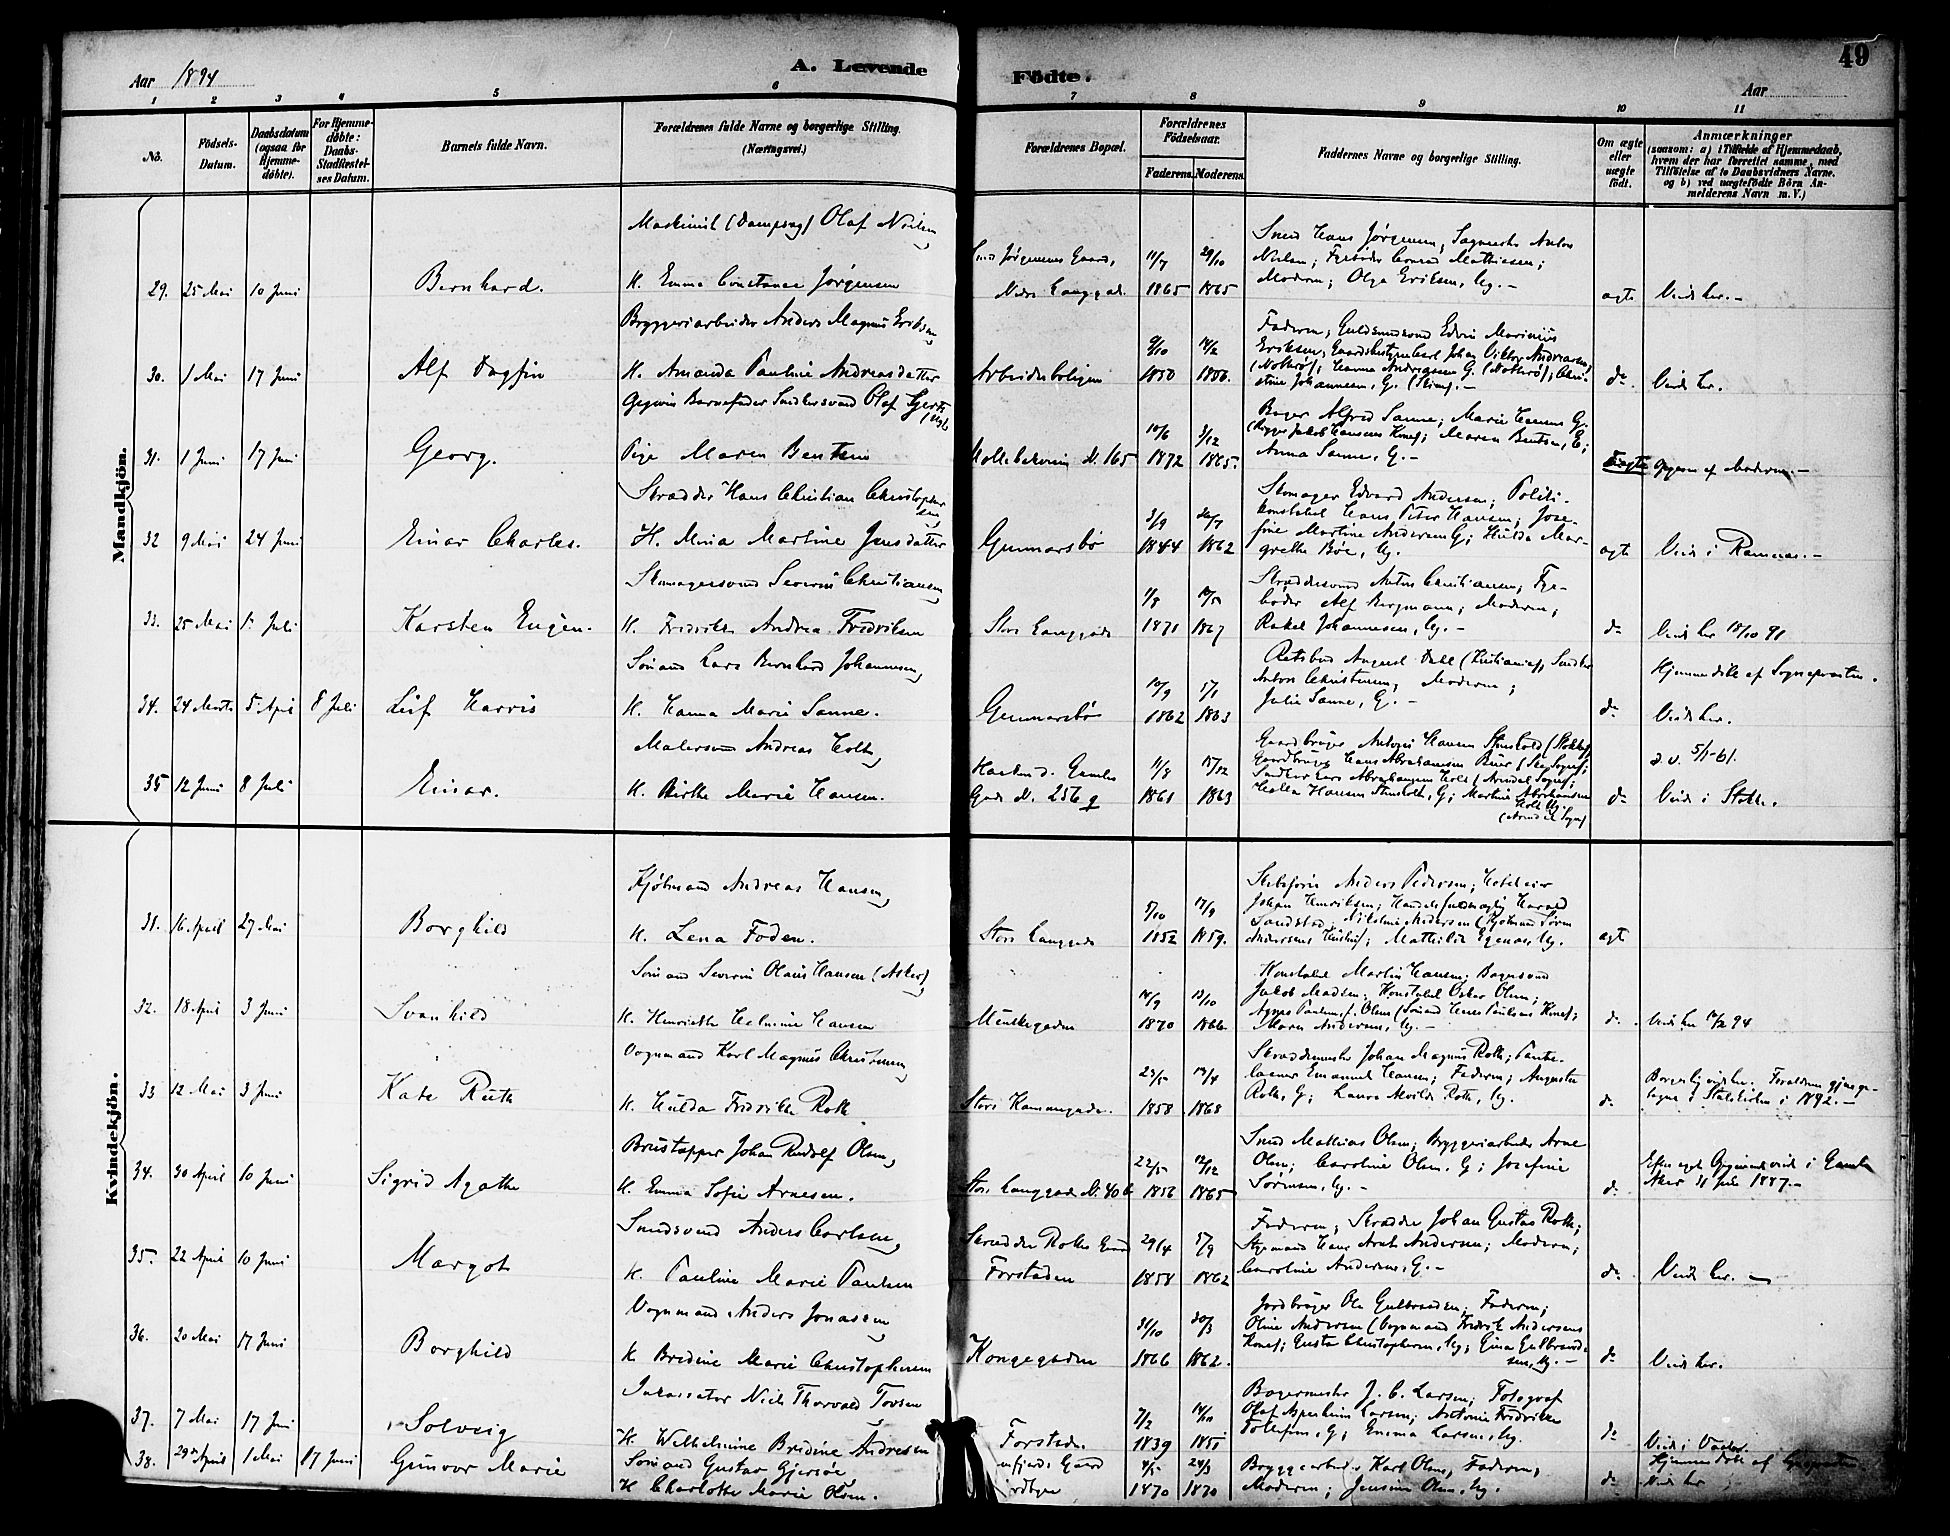 49
Aar 1894
A. Levende
Fødte.
Aar
1 2 3 4 5 6 7 8 9 10 11
No.
Fødsels-
Datum.
Daabsdatum
(ogsaa for
Hjemme-
døbte).
For Hjemme-
døbte:
Daabs-
Stadfæstel-
ses Datum.
Barnets fulde Navn.
Forældrenes fulde Navne og borgerlige Stilling.
(Næringsvei.)
Forældrenes Bopæl.
Forældrenes
Fødselsaar.
Faderens. Moderens.
Faddernes Navne og borgerlige Stilling.
Om ægte
eller
uægte
født.
Anmærkninger
(saasom: a) i Tilfælde af Hjemmedaab,
hvem der har forrettet samme, med
Tilføielse af to Daabsvidners Navne.
og b) ved uægtefødte Børn An-
melderens Navn m.V.)
Mandkjøn.
Maskinist (Dampsag) Olaf Nielsen
29. 25 Mai 10 Juni Bernhard. K. Emma Constance Jørgensen
Smed Jørgensens Gaard,
Nedre Langgade.
11/7 1865 29/10 1865
Smed Hans Jørgensen; Sagmester Anton
Nielsen; Fyrbøder Conrad Mathiesen;
Moderen; Olga Eriksen, Ug. –
ægte Viede her. –
Bryggeriarbeider Anders Magnus Eriksen
30. 1 Mai 17 Juni Alf Dagfin K. Amanda Pauline Andreasdatter
Arbeiderboligen
9/10 1850 14/2 1856.
Faderen; Guldsmedsvend Edvin Marinius
Eriksen; Gaardsbestyrer Carl Johan Viktor Andreasen
(Nøtterø); Hanna Andreasen G. (Nøtterø); Chri-
stine Johannesen, G. –
do. Viede her.
Ungkarl Barnefader Snedkersvend Olaf
31. 1 Juni 17 Juni Georg. Pige Maren Bentsen
Møllebakken N. 165
10/6 1872 3/12 1865.
Bager Alfred Sanne; Marie Hansen G.
(Rigger Jakob Hansens Kone); Maren Bentsen, E;
Anna Sanne, G. –
Uægte Opgiven af Moderen. –
Skrædder Hans Christian Christophersen
32 9 Mai 24 Juni Einar Charles. H. Mina Martine Jensdatter
Gunnarsbø
3/9 1844 26/7 1862
Skomager Edvard Andersen; Politi-
konstabel Hans Peter Hansen; Jose-
fine Martine Andersen G; Hulda Mar-
grethe Bøe, Ug.
ægte Viede i Ramnæs. –
Skomagersvend Severin Christiansen
33. 25 Mai 1. Juli Karsten Eugen. K. Fredrikke Andrea Fredriksen
Store Langgade
1/8 1871 10/5 1867
Skræddersvend Anton Christiansen; Fyr-
bøder Alf Bergmann; Moderen;
Rakel Johannesen, Ug. –
do Viede her 18/10 91
Sømand Lars Bernhard Johannesen
34. 24 Marts 5 April 8 Juli Leif Harris K. Hanna Marie Sanne.
Gunnarsbø
10/9 1862 5/1 1863
Retsbud August Dall (Kristiania), Snedker
Anton Christensen; Moderen;
Julie Sanne, G. –
do. Hjemmedøbt af Sognepresten.
Viede her.
Malersvend Andreas Holt
35 12 Juni 8 Juli Einar. K. Birthe Marie Hansen.
Gamle
Gade N. 256 g
11/8 1861 15/12 1863
Gaardbruger Antoni Hansen Stensholt (Stokke);
Gaardbruger Hans Abrahamsen Buer (Sem Sogn);
Snedker Lars Abrahamsen Holt (Arendal Sogn);
Hella Hansen Stensholt, G; Martine Abrahamsen
Holt Ug.
(Arendal Sogn)
do Viede i Stokke.
Kvindekjøn.
Kjøbmand Andreas Hansen
31. 16 April 27 Mai Borghild K. Lena Foden.
Store Langgade
5/10 1852 17/9 1859.
Skibsfører Anders Pedersen; Hoteleier
Johan Henriksen; Handelsfuldmægtig Harald
Sandstad; Nikoline Andersen (Kjøbmand Søren
Andersens Hustru); Mathilde Egenæs, Ug.
ægte
Sømand Severin Olaus Hansen (Asker)
32. 18 April 3 Juni Svanhild K. Henriette Helmine Hansen
Munkegaden
14/9 1870 13/10 1866.
Konstabel Martin Hansen; Bagersvend
Jakob Madsen; Konstabel Oskar Olsen;
Agnes Paulsen, f. Olsen (Sømand Hans Paulsens Kone);
Maren Andersen, Ug. –
do. Viede her 14/2 94
Vognmand Karl Magnus Christensen
33 12 Mai 3 Juni Kate Ruth K. Hulda Fredrikke Roth
Store Kammegade.
23/5 1858 19/4 1868
Skræddermester Johan Magnus Roth; Pante-
laaner Emanuel Hansen; Faderen; Augusta
Roth, G; Laura Alvilde Roth, Ug.
do. Borgerlig viede her. Forældrene
i Statskirken i 1892. –
Brustapper Johan Rudolf Olsen,
34. 30 April 10 Juni Sigrid Agathe K. Emma Sofie Arnesen.
Store Langgade N. 40 b
22/5 1856 12/12 1865
Smed Mathias Olsen; Bryggeriarbeider Arne
Olsen; Caroline Olsen, G; Josefine
Sørensen, Ug. –
do. Efter eget Opgivende viede i Gamle
Aker 31 Juli 1887. –
Smedsvend Anders Carlsen,
35. 22 April 10 Juni Margot K. Pauline Marie Paulsen
Skrædder Roths Gaard
Forstaden
29/4 1858 5/9 1862
Faderen; Skrædder Johan Gustav Roth;
Styrmand Hans Andersen; Moderen;
Caroline Andersen, G. –
do. Viede her. –
Vognmand Anders Jonassen
36. 20 Mai 17 Juni Borghild K Bredine Marie Christophersen
Kongegaden
31/10 1866 30/3 1862.
Jordbruger Ole Gulbrandsen; Faderen;
Oline Andersen (Vognmand Fredrik Andersens
Kone); Gusta Christophersen, Ug; Gina Gulbrand-
sen, Ug. –
do Viede her.
Inkassator Niels Thorvald Tovsen
37. 7 Mai 17 Juni Solveig K. Wilhelmine Bredine Andresen
Forstaden
7/2 1839 14/11 1851
Bagermester J. C. Larsen; Fotograf
Olaf Larsen; Antonie Fredrikke
Tollefsen, G; Emma Larsen, Ug.
do Viede i Vaaler.
Sømand Gustav Gjersøe,
38. 29 April 1 Mai 17 Juni Gunvor Marie K Charlotte Marie Olsen.
Gaard
4/5 1870 24/3 1870
Bryggearbeider Karl Olsen; Faderen;
Moderen; Jensine Olsen, Ug.
do Hjemmedøbt af Sognepresten
Viede her